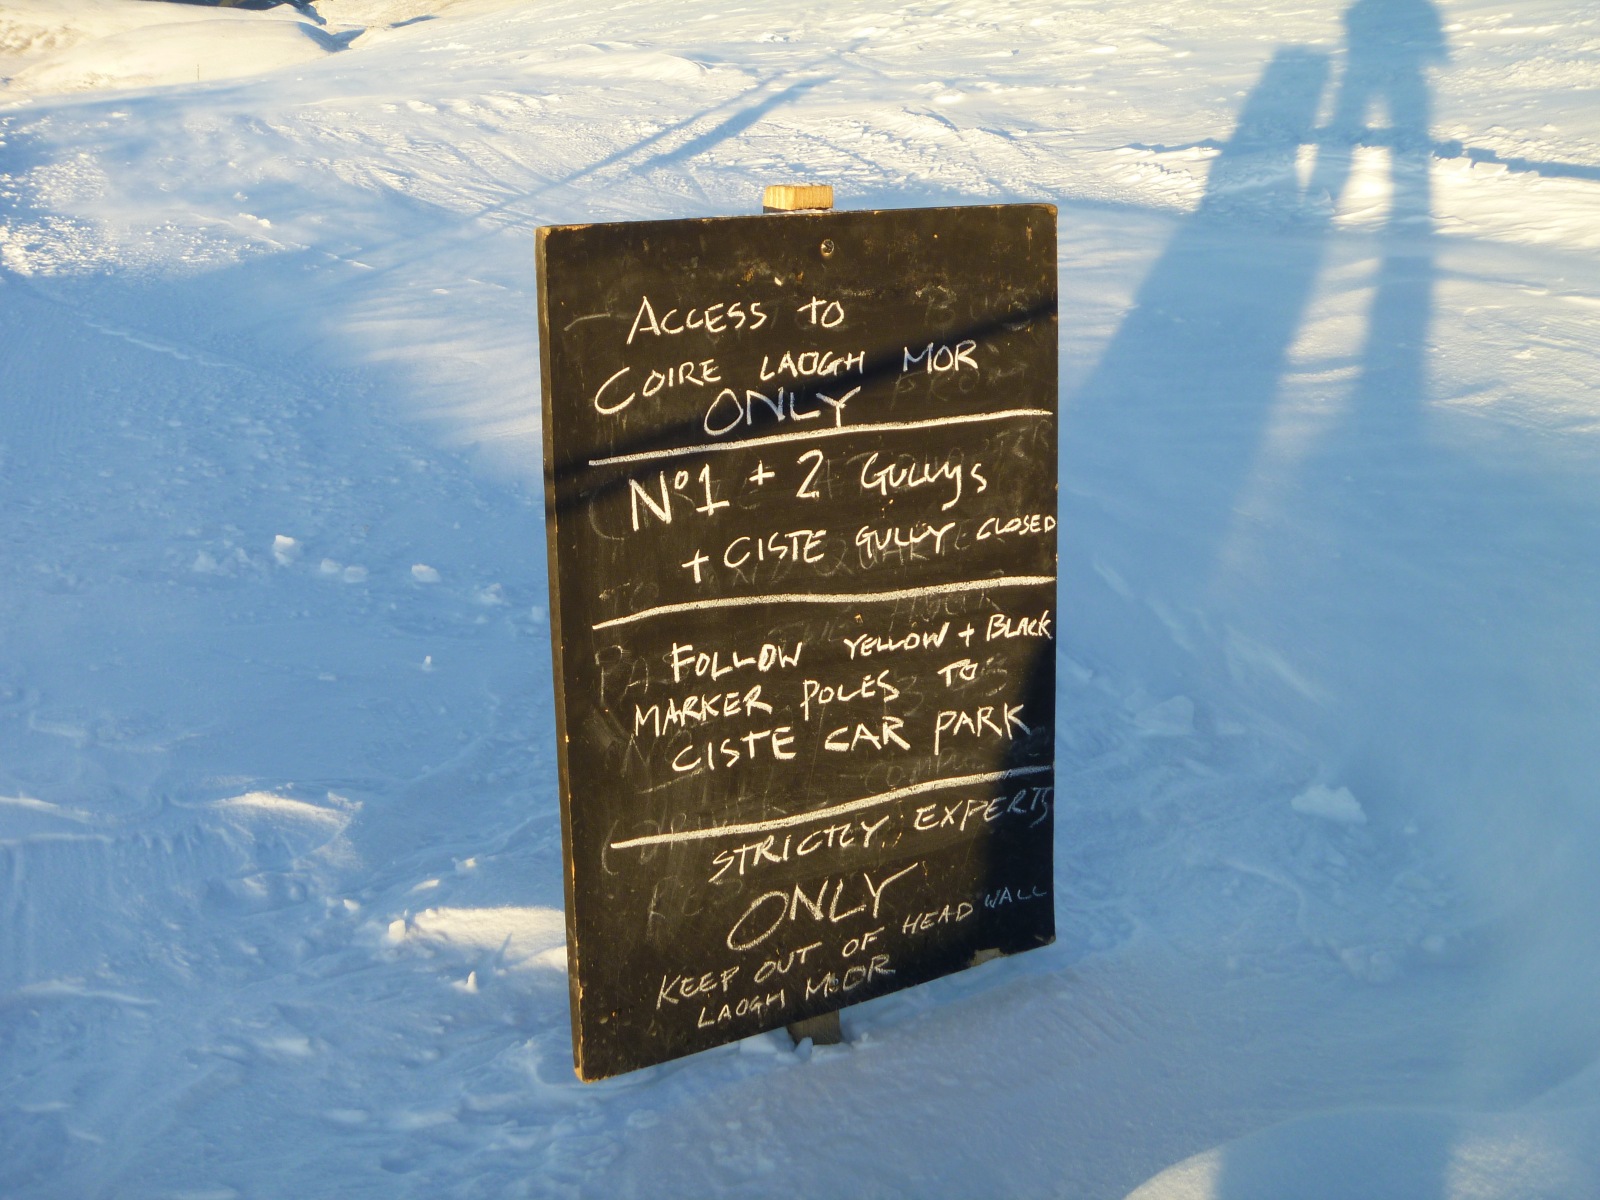 ACCESS TO
COIRE LAOGH MOR
ONLY
Nº1 + 2 GULLYS
+ CISTE GULLY CLOSED
FOLLOW YELLOW + BLACK
MARKER POLES TO
CISTE CAR PARK
STRICTLY EXPERTS
ONLY
KEEP OUT OF HEAD WALL
LAOGH MOR